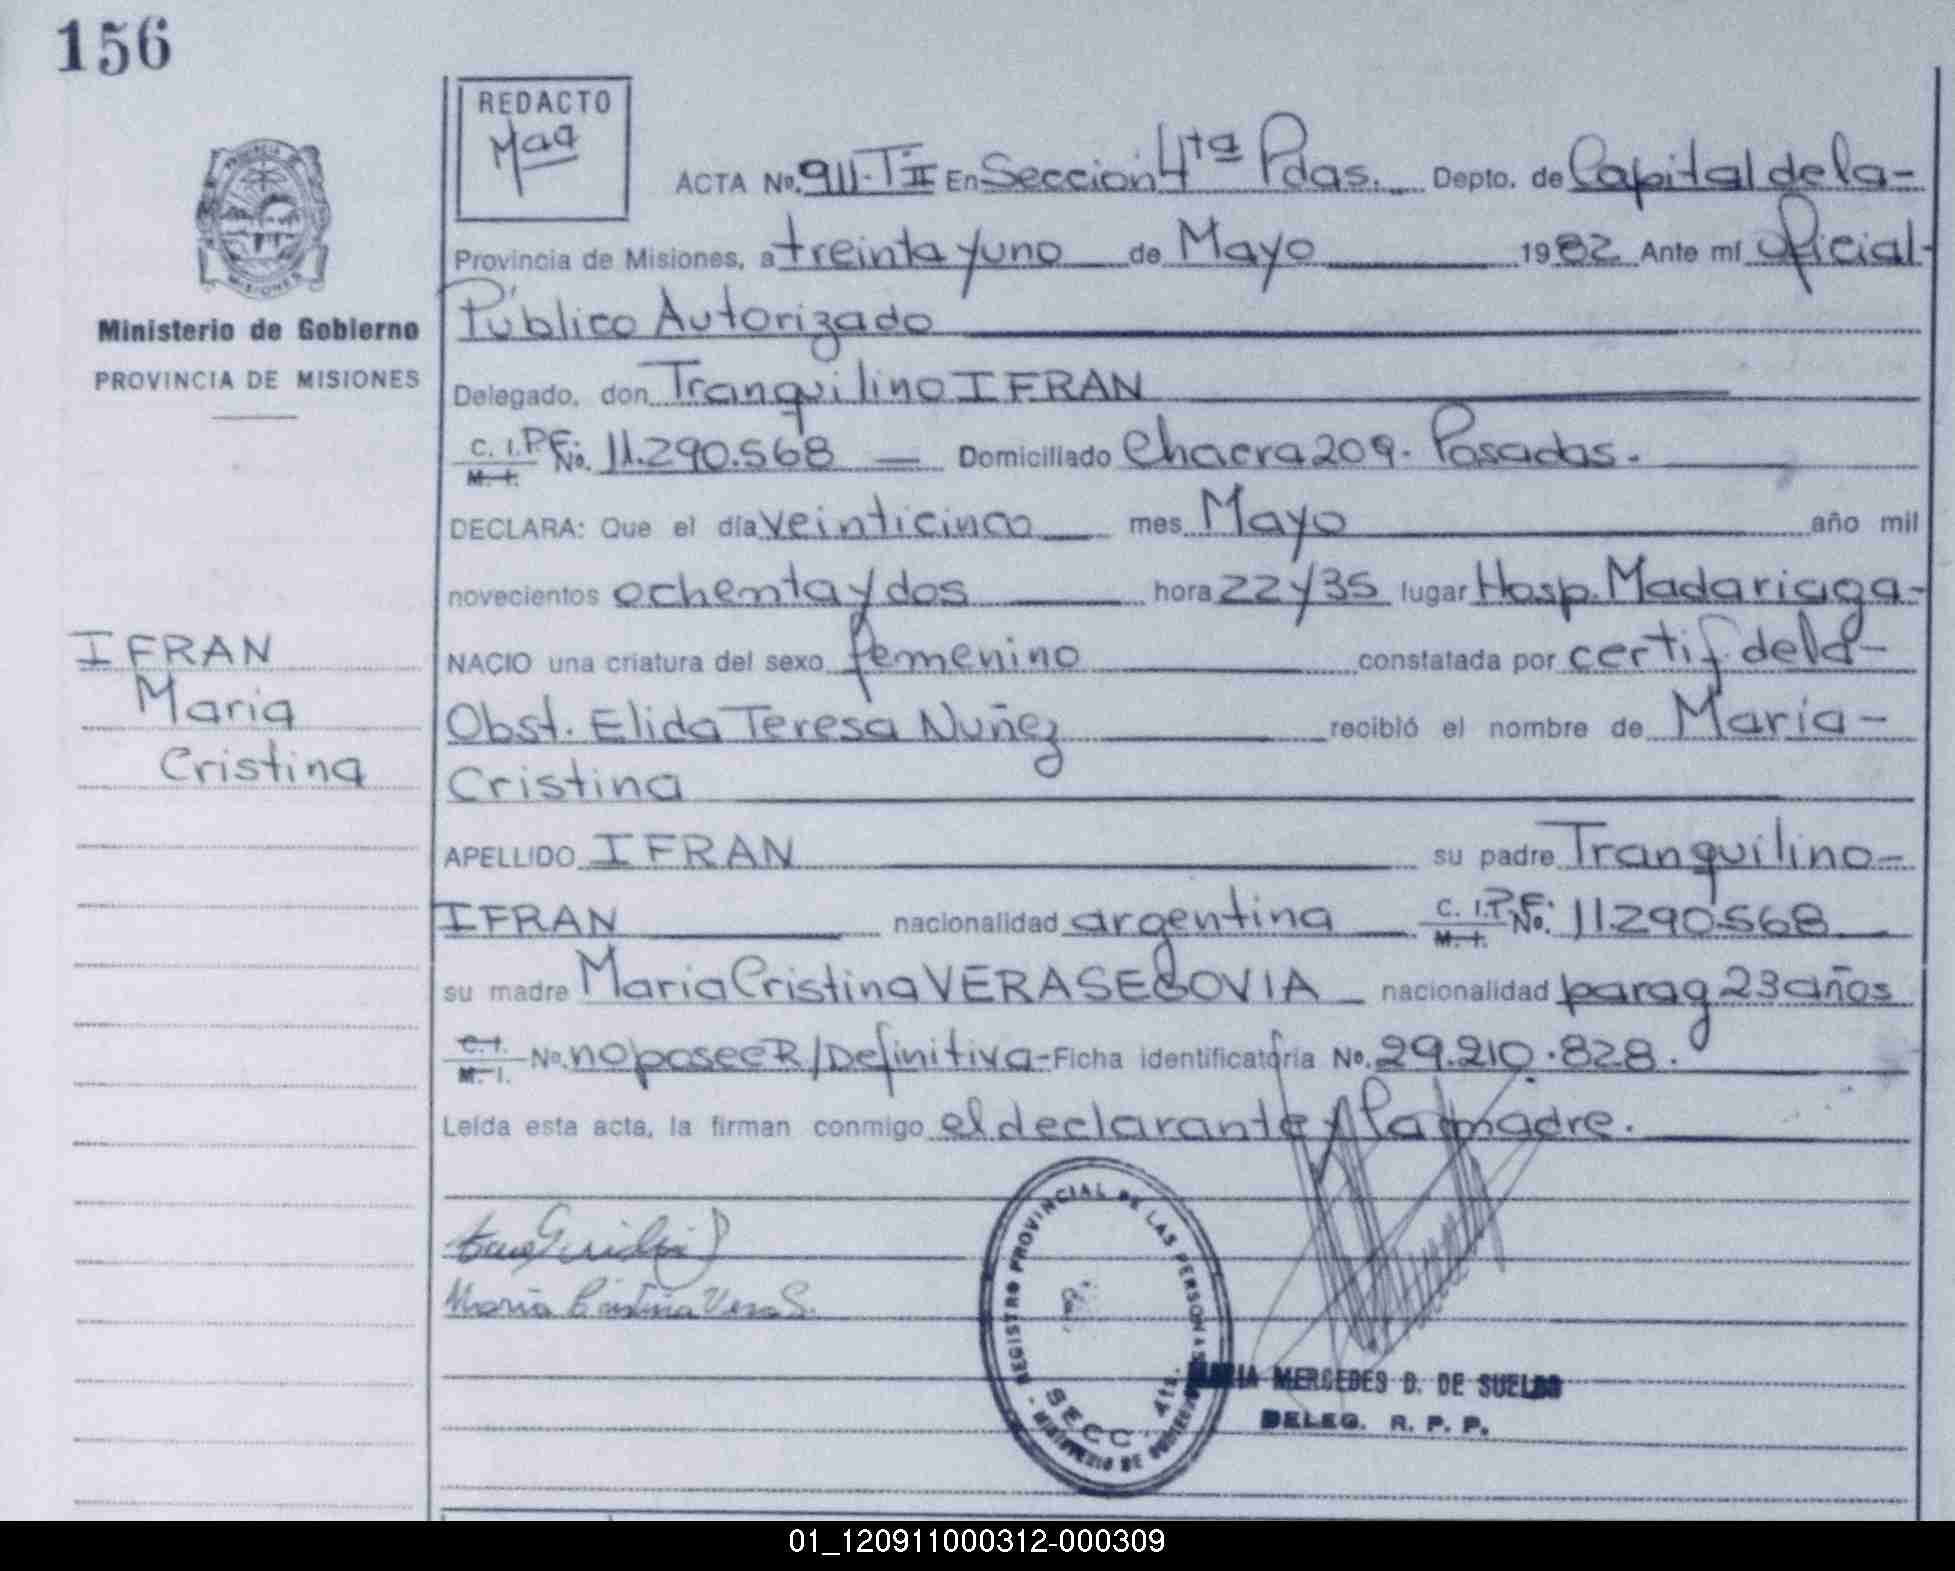 156
REDACTO
Maq
ACTA No. 911-T II En Sección 4ta Pdas. Depto. de Capital de la-
Provincia de Misiones, a treinta y uno de Mayo 1982 Ante mí oficial-
Público Autorizado
Delegado, don Tranquilino IFRAN
C. I.P.F. No. 11.290.568 Domiciliado Chacra 209. Posadas.
M. I.
DECLARA: Que el día veinticinco mes Mayo año mil
novecientos ochenta y dos hora 22 y 35 lugar Hosp. Madariaga-
NACIO una criatura del sexo femenino constatada por certif. de la-
Obst. Elida Teresa Nuñez recibió el nombre de María-
Cristina
APELLIDO IFRAN su padre Tranquilino-
IFRAN nacionalidad argentina C. I.P.F. No. 11.290.568
M. I.
su madre Maria Cristina VERA SEGOVIA nacionalidad parag 23 años
C. I. No. no posee R/Definitiva- Ficha identificatória No. 29.210.828.
M. I.
Leída esta acta, la firman conmigo el declarante y la madre.
Maria Cristina Vera S.
MISIONES
Ministerio de Gobierno
PROVINCIA DE MISIONES
IFRAN
Maria
Cristina
REGISTRO PROVINCIAL DE LAS PERSONAS
SECC. 4ta.
MINISTERIO DE GOBIERNO
MARIA MERCEDES D. DE SUELDO
DELEG. R. P. P.
01_120911000312-000309